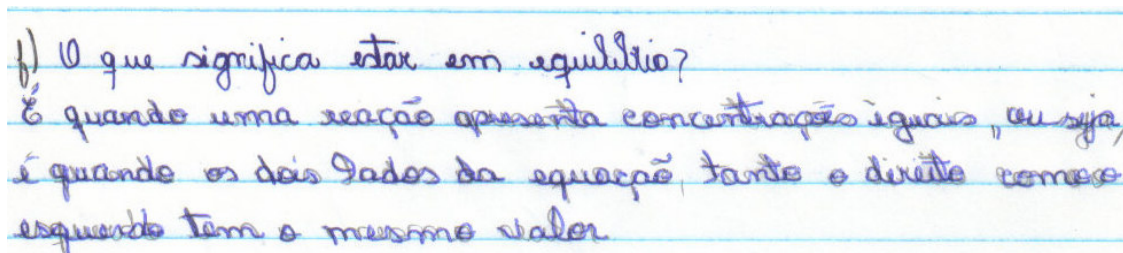 f) O que significa estar em equilíbrio?
É quando uma reação apresenta concentrações iguais, ou seja,
é quando os dois lados da equação, tanto o direito como o
esquerdo tem o mesmo valor